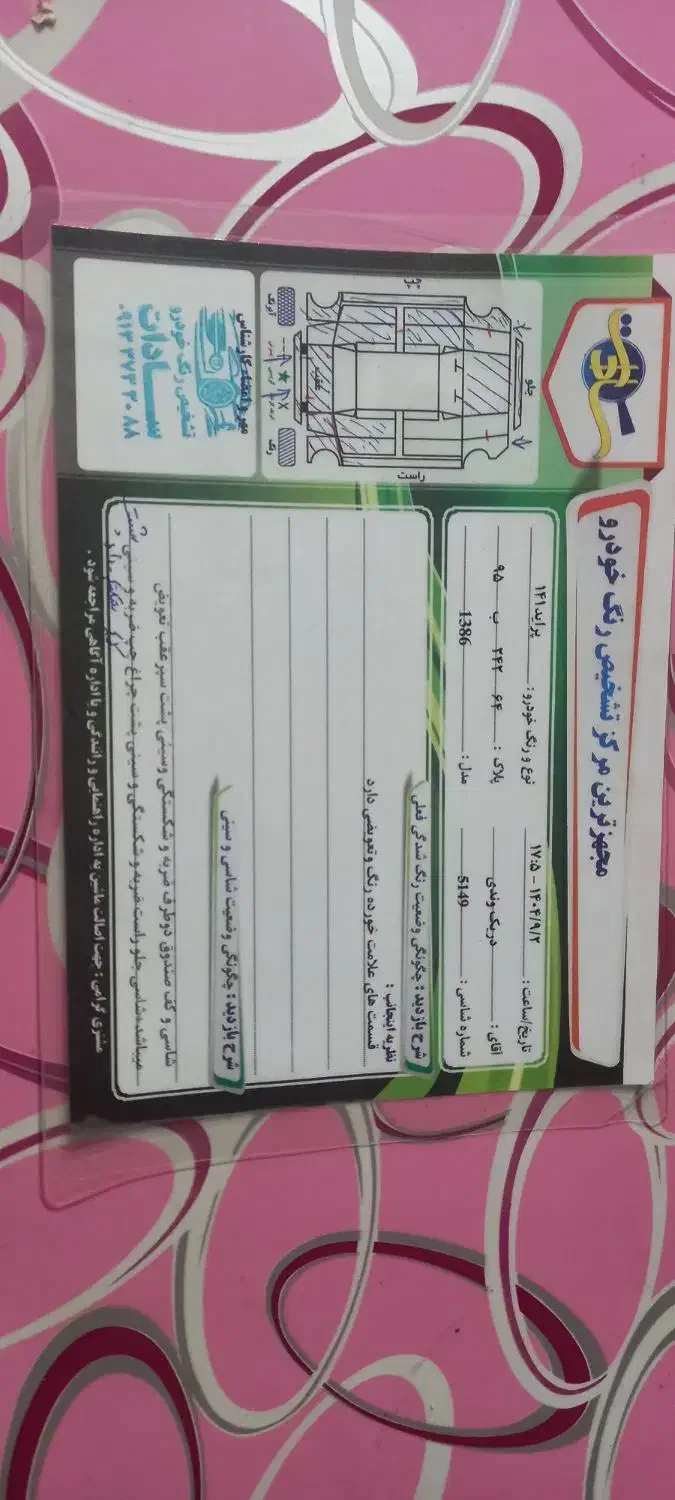 مجهزترین مرکز تشخیص رنگ خودرو
تاریخ/ساعت: ۱۴۰۴/۹/۲ - ۱۷:۵
نوع و رنگ خودرو: پراید ۱۴۱
آقای: دریک وندی
پلاک: ۶۴ ۲۴۲ ب ۹۵
شماره شاسی: 5149
مدل: 1386
شرح بازدید: چگونگی وضعیت رنگ شدگی فعلی
نظریه اینجانب:
قسمت های علامت خورده رنگ و تعویضی دارد
شرح بازدید: چگونگی وضعیت شاسی و سینی
شاسی و کف صندوق دوطرف ضربه و شکستگی وسینی پشت سپر عقب تعویض
میباشد،شاسی جلو راست ضربه و شکستگی و سینی پشت چراغ چپ ضربه و سینی پشت
مشتری گرامی: جهت اصالت ماشین به اداره راهنمایی و رانندگی و یا اداره آگاهی مراجعه شود.
جلو
راست
عقب
رنگ
آبرنگ
مهر و امضاء کارشناس
تشخیص رنگ خودرو
سادات
۰۹۱۳۳۷۳۲۰۸۸